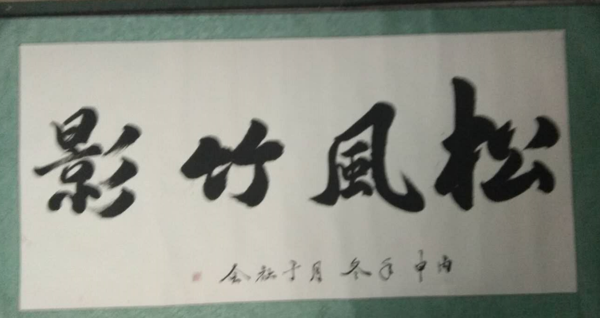 松風竹影
丙申年冬月于